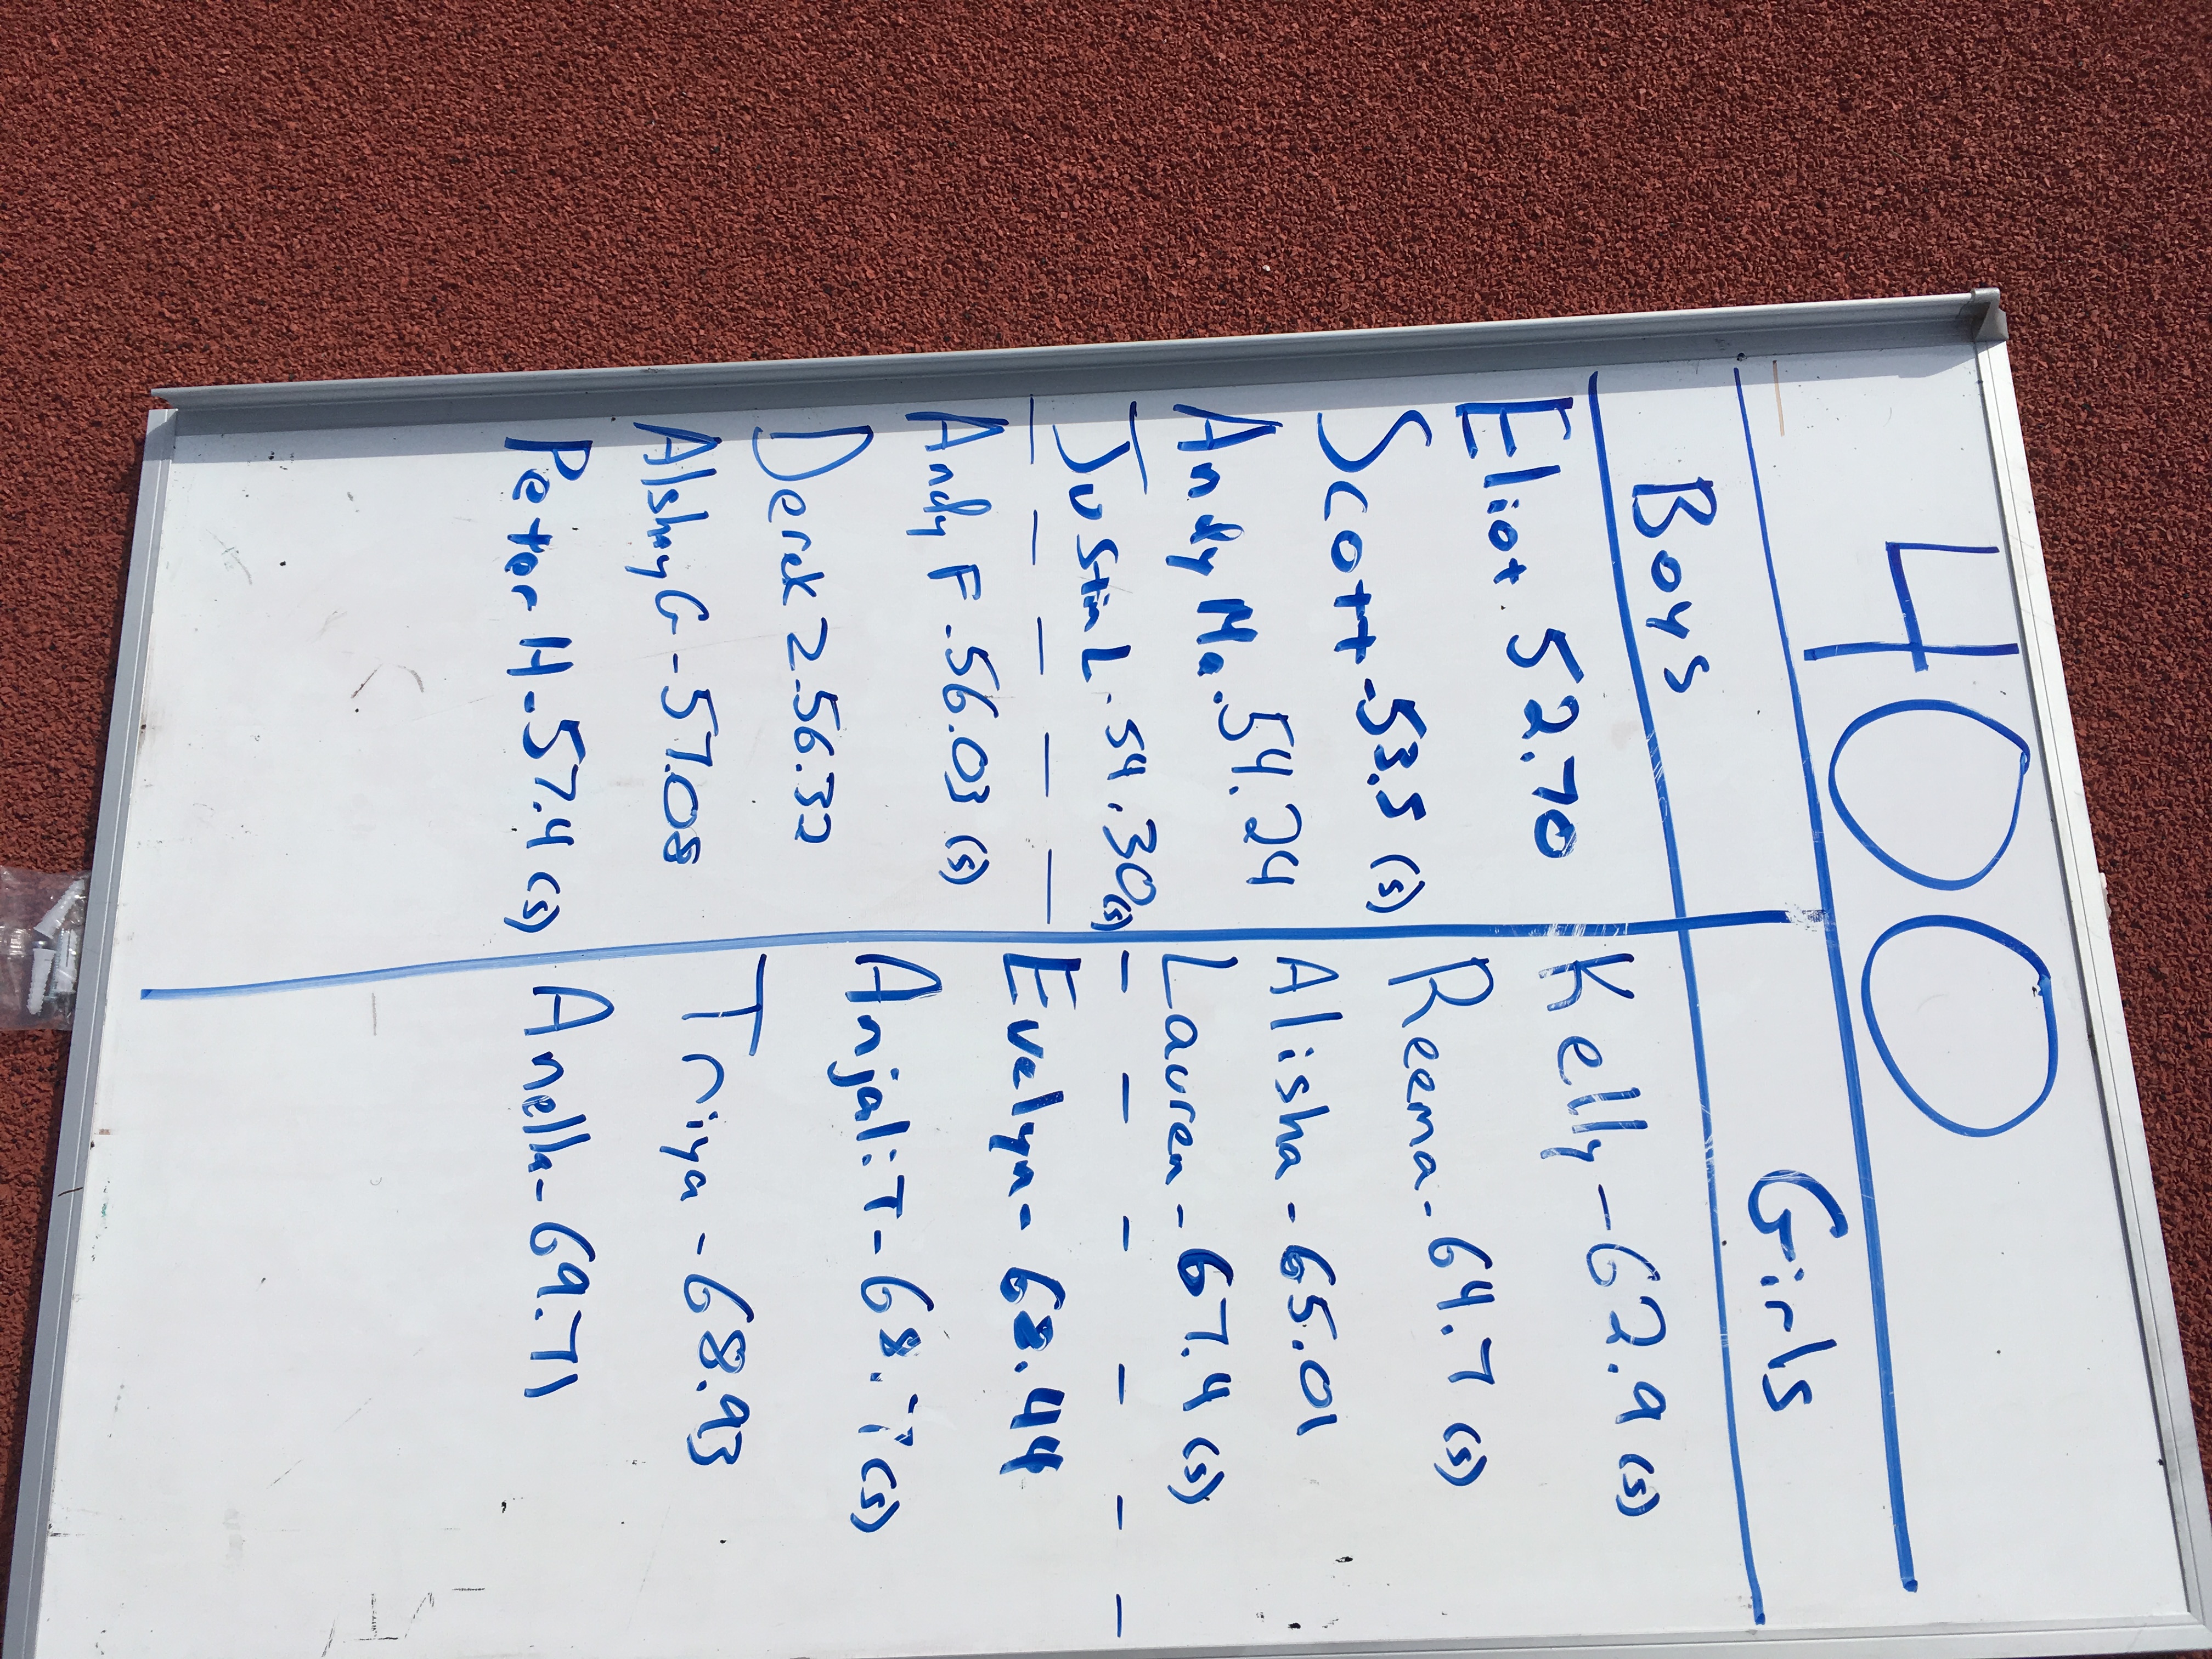 400
Boys
Girls
Eliot. 52.70
Scott - 53.5 (s)
Andy Ma. 54.24
Justin L. 54.30(s)
Andy F. 56.03 (s)
Derek Z. 56.32
G - 57.08
Peter H - 57.4 (s)
Kelly - 62.9 (s)
Reema - 64.7 (s)
Alisha - 65.01
Lauren - 67.4 (s)
Evelyn - 68.44
Anjali T - 68.7 (s)
Triya - 68.93
Anella - 69.71